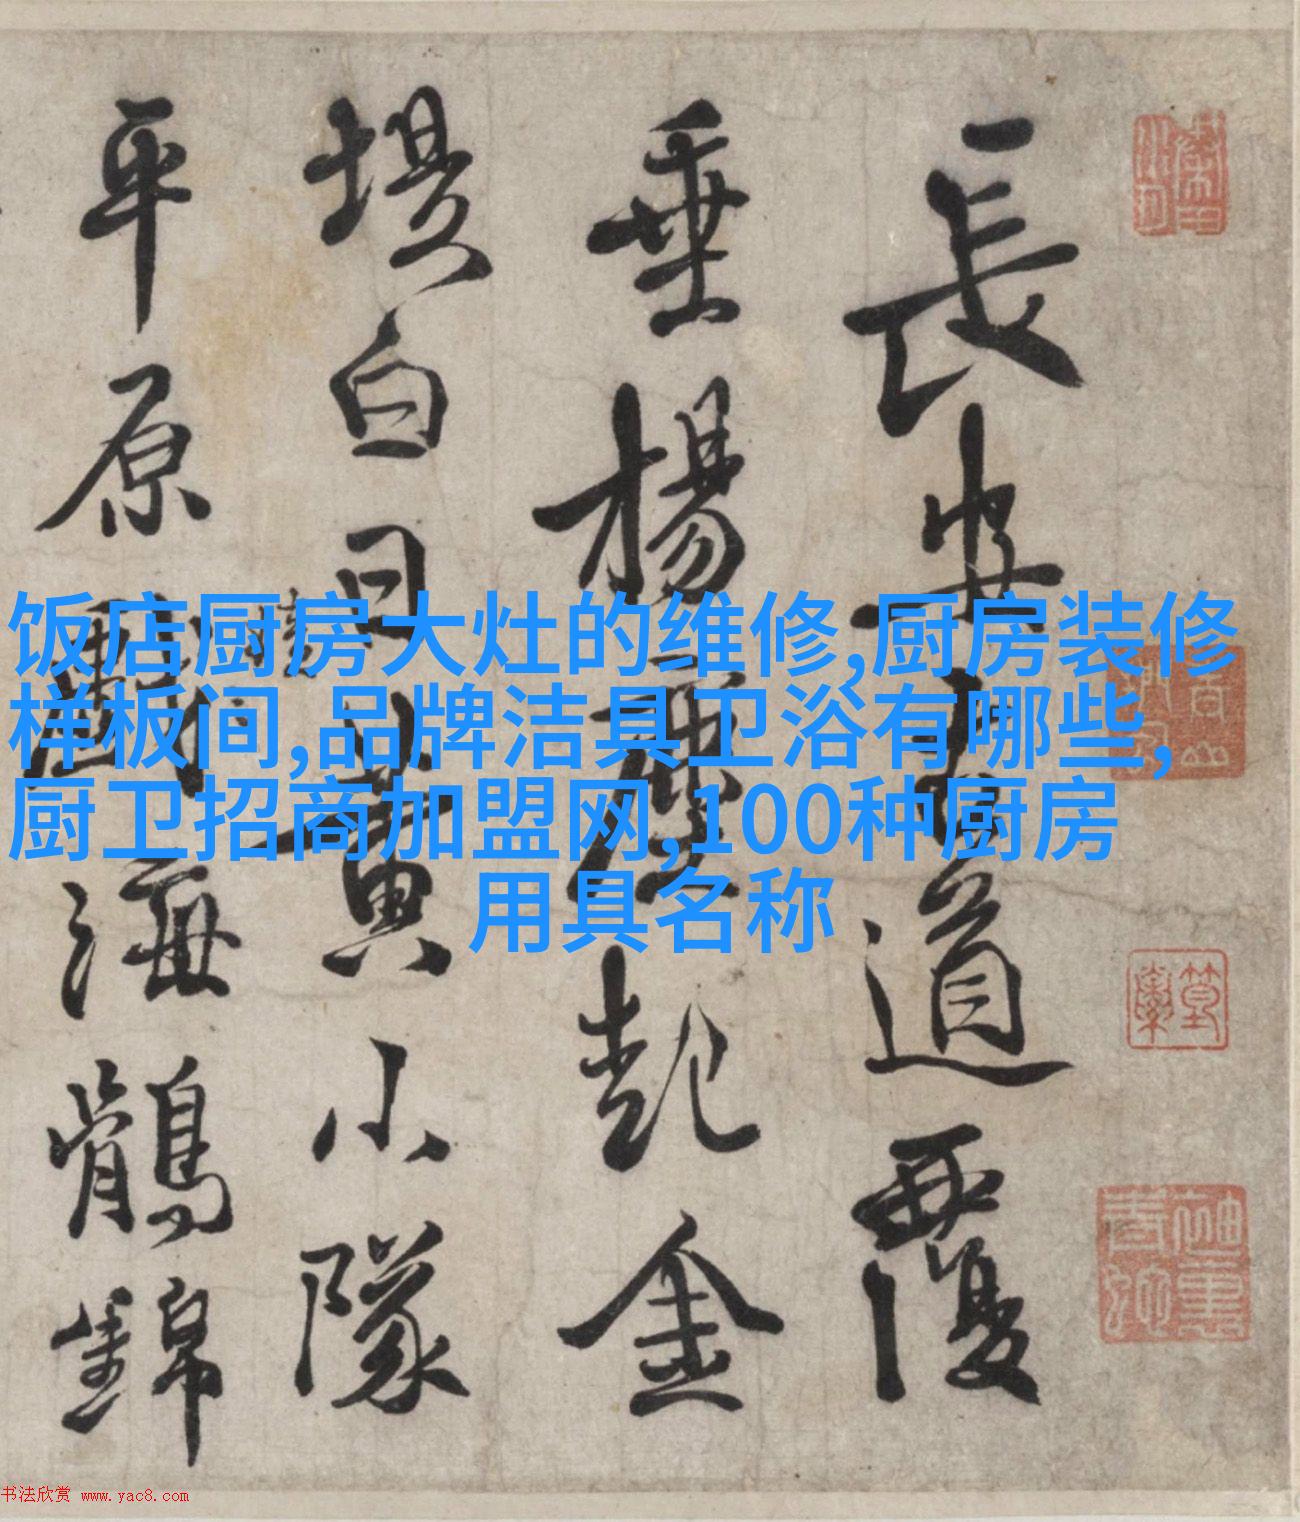 長安道覆
垂楊起金
堤白日黃小隊
平原海鶻錦
饭店厨房大灶的维修,厨房装修
样板间,品牌洁具卫浴有哪些,
厨卫招商加盟网,100种厨房
用具名称
书法欣赏 www.yac8.com